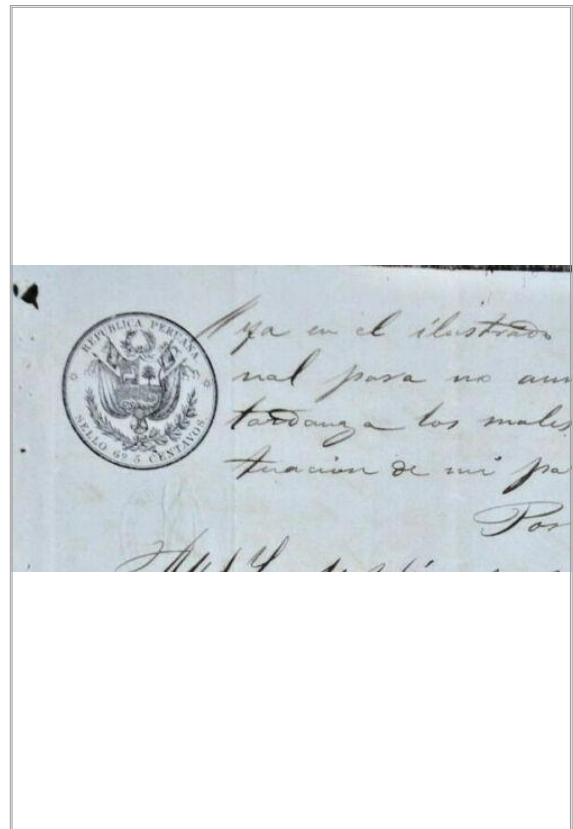 REPUBLICA PERUANA
SELLO 6º 5 CENTAVOS
ya en el ilustrado
nal para no aum
tardanza los males
tuacion de mi pa
Por